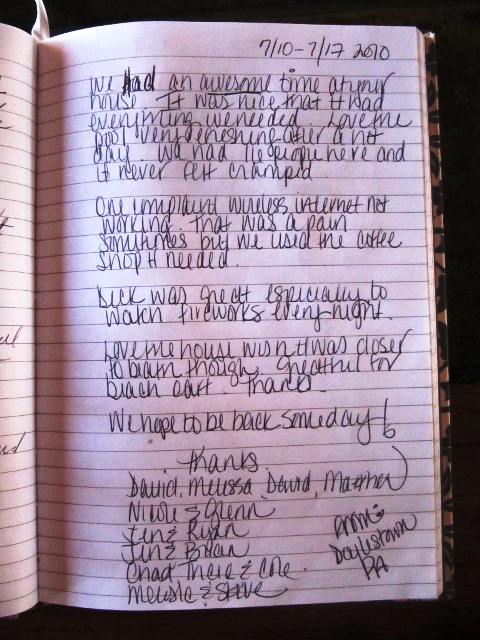 7/10-7/17 2010
We had an awesome time at your
house. It was nice that it had
everything we needed. Love the
pool very refreshing after a hot
day. We had 16 people here and
it never felt cramped.
One compliant wireless internet not
working. That was a pain
sometimes but we used the coffee
shop if needed.
Deck was great especially to
watch fireworks every night.
Love the house wish it was closer
to beach though. Greatful for
beach cart. Thanks.
We hope to be back someday!
Thanks
David, Melissa, David, Matthew
Nicole & Glenn
Jen & Ryan
Jen & Brian
Chad & Cole
& Steve
From:
Doylestown
PA